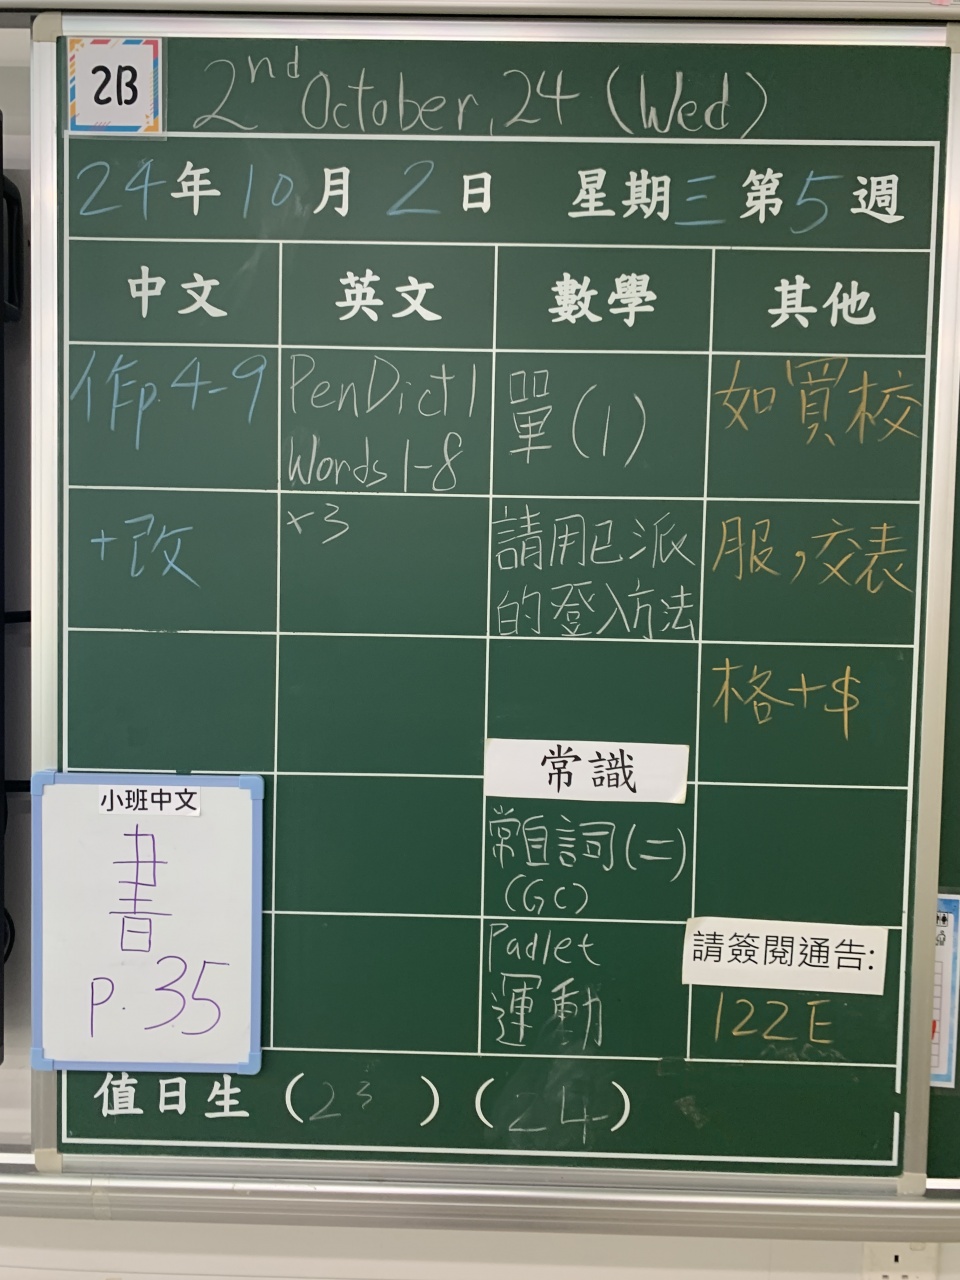 2B
2nd October, 24 (Wed)
24年10月2日 星期三第5週
中文 英文 數學 其他
作p.4-9
+改
PenDict 1
Words 1-8
x3
單(1)
請用已派
的登入方法
如買校
服,交表
格+$
常識
常自詞(二)
(GC)
Padlet
運動
請簽閱通告:
122E
小班中文
書
p. 35
值日生 (23) (24)